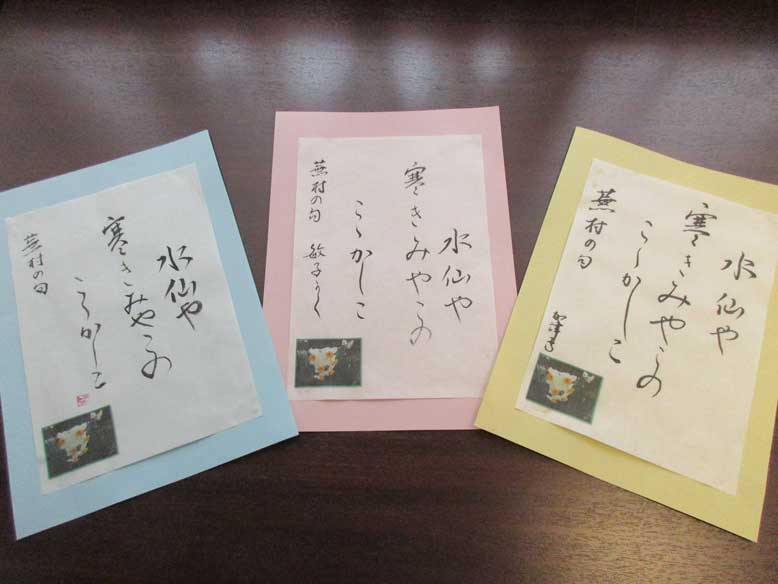 水仙や
寒きみやこの
こゝかしこ
蕪村の句
水仙や
寒きみやこの
こゝかしこ
蕪村の句 敏子かく
水仙や
寒きみやこの
こゝかしこ
蕪村の句